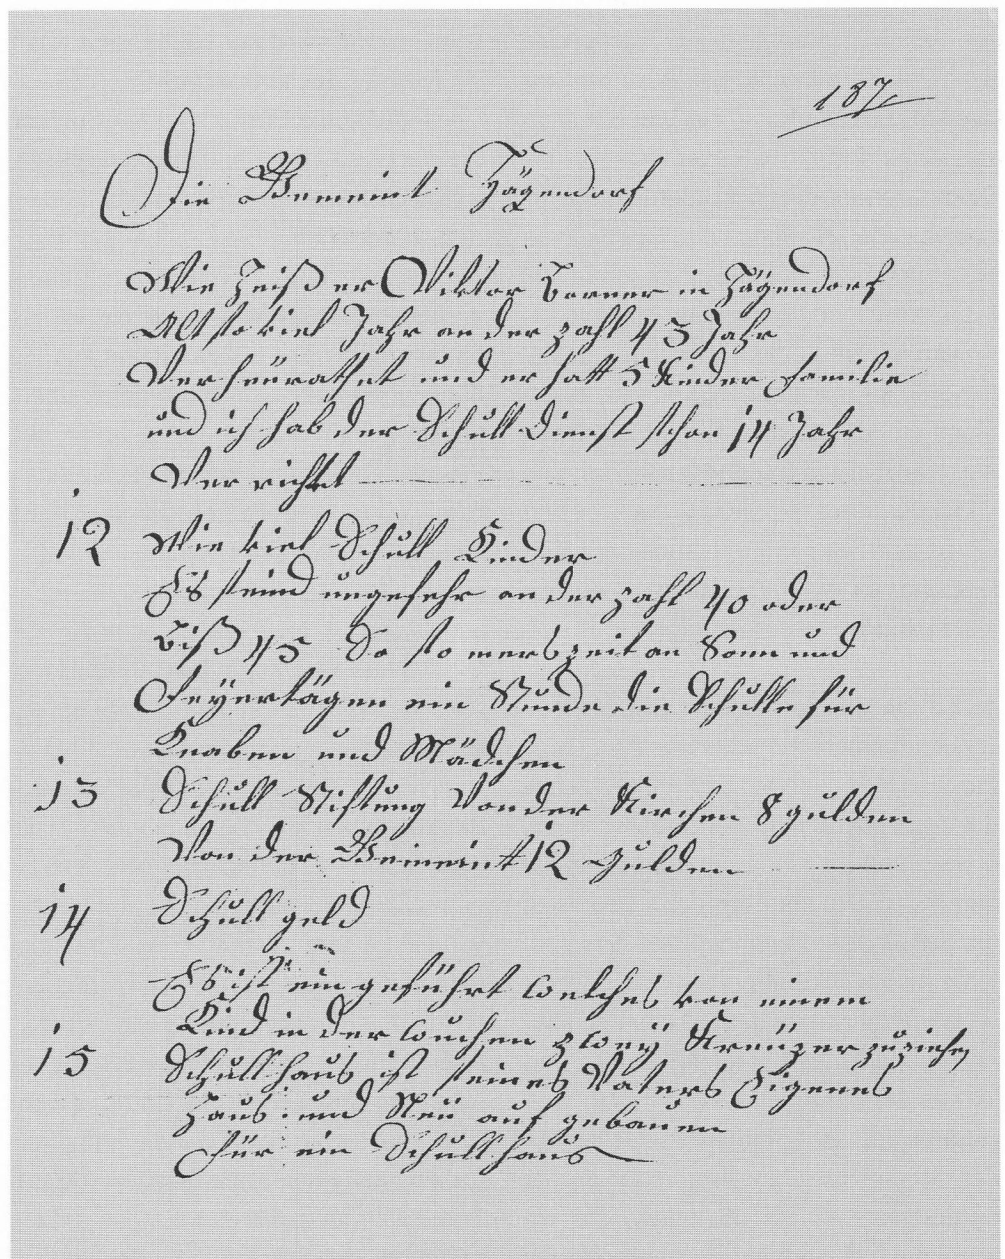 187
Die Gemeint Jägendorf
Wie heiß er Viktor Borner in Jägendorf
Alt so viel Jahr an der zahl 43 Jahr
Verheürathet und er hatt 5 Kinder familie
und ich hab der Schull Dienst schon 14 Jahr
Verrichtet
12 Wie viel Schull Kinder
Es seind ungefehr an der zahl 40 oder
biß 45 So so merszeit an Sonn und
Feÿertägen ein Stunde die Schulle für
Knaben und Mädchen
13 Schull Stiftung Von der Kirchen 8 gulden
Von der Gemeint 12 Gulden
14 Schull geld
Es ist ein geführt welches von einem
Kind in der wuchen zweÿ Kreüzer zu ziehen
15 Schull haus ist seines Vaters Eigenes
haus und Neü auf gebauen
für ein Schull haus